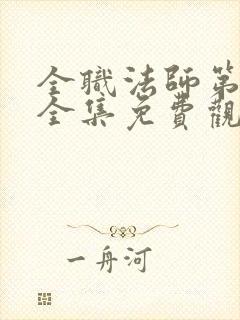 全職法師第
全集免費觀
一舟河